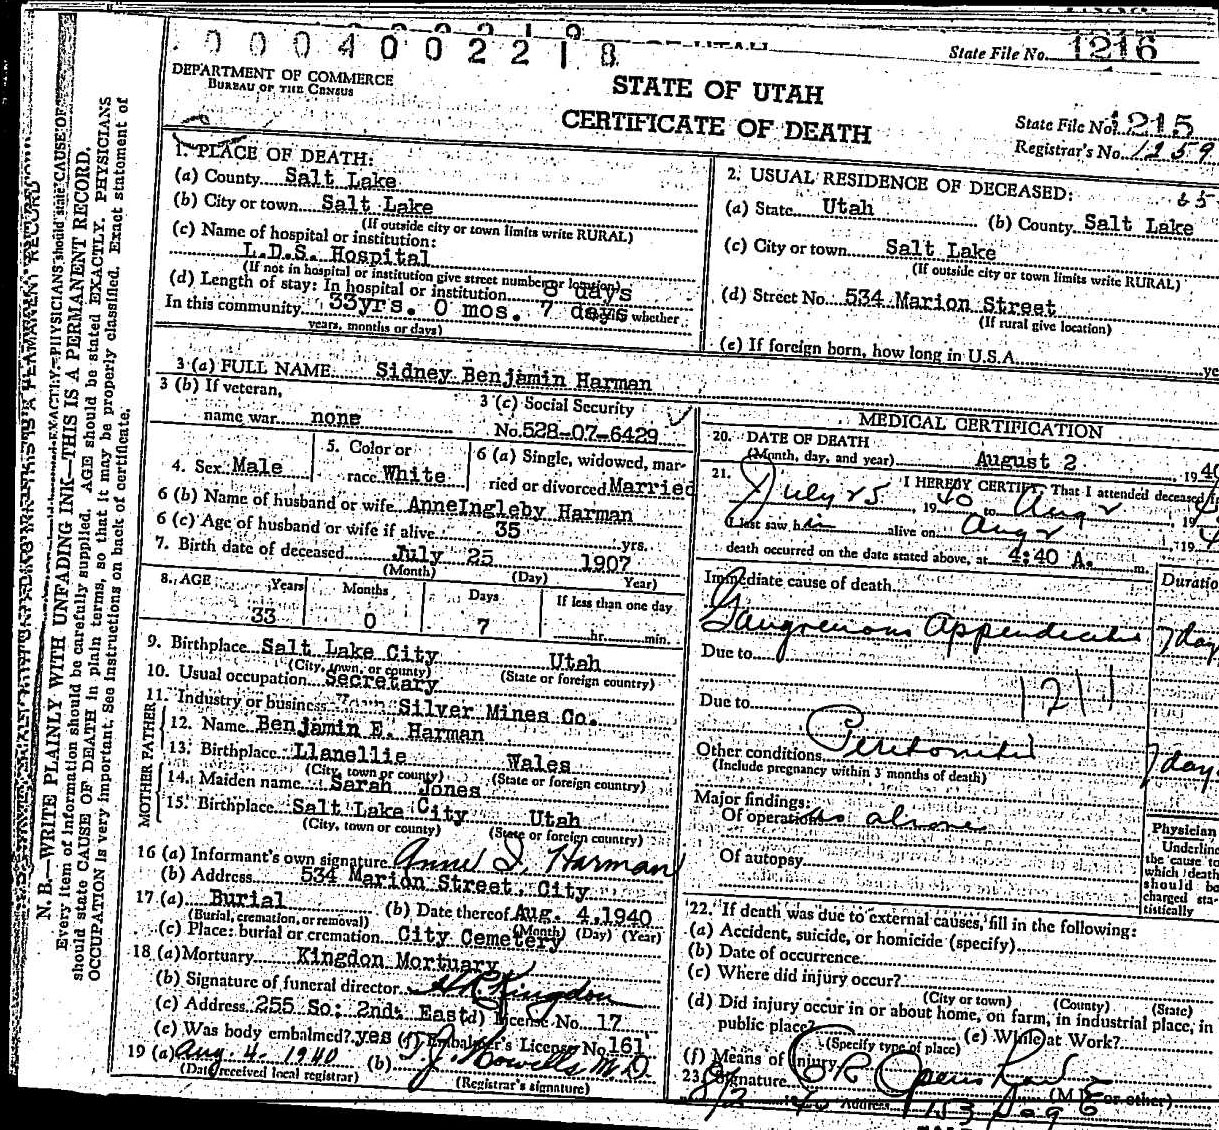 0 0 0 4 0 0 2 2 1 8
State File No. 1216
DEPARTMENT OF COMMERCE
BUREAU OF THE CENSUS
STATE OF UTAH
CERTIFICATE OF DEATH
State File No. 1215
Registrar's No. 1259
N. B.—WRITE PLAINLY WITH UNFADING INK—THIS IS A PERMANENT RECORD.
Every item of information should be carefully supplied. AGE should be stated EXACTLY. PHYSICIANS
should state CAUSE OF DEATH in plain terms, so that it may be properly classified. Exact statement of
OCCUPATION is very important. See instructions on back of certificate.
1. PLACE OF DEATH:
(a) County Salt Lake
(b) City or town Salt Lake
(If outside city or town limits write RURAL)
(c) Name of hospital or institution:
L.D.S. Hospital
(If not in hospital or institution give street number or location)
(d) Length of stay: In hospital or institution 8 days
In this community 33yrs. 0 mos. 7 days whether
years, months or days)
2. USUAL RESIDENCE OF DECEASED:
(a) State Utah (b) County Salt Lake
(c) City or town Salt Lake
(If outside city or town limits write RURAL)
(d) Street No. 534 Marion Street
(If rural give location)
(e) If foreign born, how long in U.S.A.
3 (a) FULL NAME Sidney Benjamin Harman
3 (b) If veteran,
name war none
3 (c) Social Security
No. 528-07-6429
4. Sex Male
5. Color or
race White
6 (a) Single, widowed, mar-
ried or divorced Married
6 (b) Name of husband or wife AnneIngleby Harman
6 (c) Age of husband or wife if alive 35 yrs.
7. Birth date of deceased July 25 1907
(Month) (Day) Year)
8. AGE Years Months Days If less than one day
33 0 7 hr. min.
9. Birthplace Salt Lake City Utah
(City, town, or county) (State or foreign country)
10. Usual occupation Secretary
11. Industry or business Silver Mines Co.
FATHER
12. Name Benjamin E. Harman
13. Birthplace Llanellie Wales
(City, town or county) (State or foreign country)
MOTHER
14. Maiden name Sarah Jones
15. Birthplace Salt Lake City Utah
(City, town or county) (State or foreign country)
16 (a) Informant's own signature Anne I. Harman
(b) Address 534 Marion Street, City
17 (a) Burial (b) Date thereof Aug. 4, 1940
(Burial, cremation, or removal) (Month) (Day) (Year)
(c) Place: burial or cremation City Cemetery
18 (a) Mortuary Kingdon Mortuary
(b) Signature of funeral director Kingdon
(c) Address 255 So: 2nd: East (d) License No. 17
(e) Was body embalmed? yes (f) Embalmer's License No. 161
19 (a) Aug. 4. 1940 (b) T. J. Howells M.D.
(Date received local registrar) (Registrar's signature)
MEDICAL CERTIFICATION
20. DATE OF DEATH
(Month, day, and year) August 2 , 1940
21. I HEREBY CERTIFY, That I attended deceased
July 25 , 1940 to Aug 2 , 19
I last saw him alive on Aug 2 , 19
death occurred on the date stated above, at 4:40 A. m.
Immediate cause of death Duration
Gangrenous Appendicitis 7 day
Due to
121
Due to
Other conditions Peritonitis 7 days
(Include pregnancy within 3 months of death)
Major findings:
Of operations as above
Of autopsy
Physician
Underline
the cause to
which death
should be
charged sta-
tistically
22. If death was due to external causes, fill in the following:
(a) Accident, suicide, or homicide (specify)
(b) Date of occurrence
(c) Where did injury occur?
(City or town) (County) (State)
(d) Did injury occur in or about home, on farm, in industrial place, in
public place? (e) While at Work?
(Specify type of place)
(f) Means of Injury
23. Signature C R Openshaw (M D or other)
8/2 Address